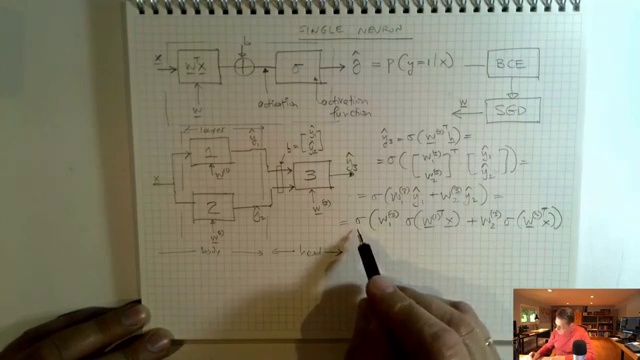 SINGLE NEURON
x wᵀx b σ ŷ = p(y=1|x) BCE
w activation activation function w SGD
layer ŷ₁ b = [ŷ₁ ŷ₂]
x 1 w⁽¹⁾ 3 ŷ₃ w⁽³⁾
2 w⁽²⁾ ŷ₂
head
ŷ₃ = σ(w⁽³⁾ᵀ b) =
= σ([w₁⁽³⁾ w₂⁽³⁾]ᵀ [ŷ₁ ŷ₂]) =
= σ(w₁⁽³⁾ ŷ₁ + w₂⁽³⁾ ŷ₂) =
= σ(w₁⁽³⁾ σ(w⁽¹⁾ᵀ x) + w₂⁽³⁾ σ(w⁽²⁾ᵀ x))